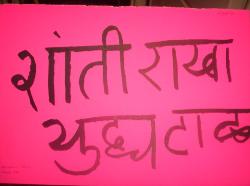 शांती राखा
युद्ध टाळा